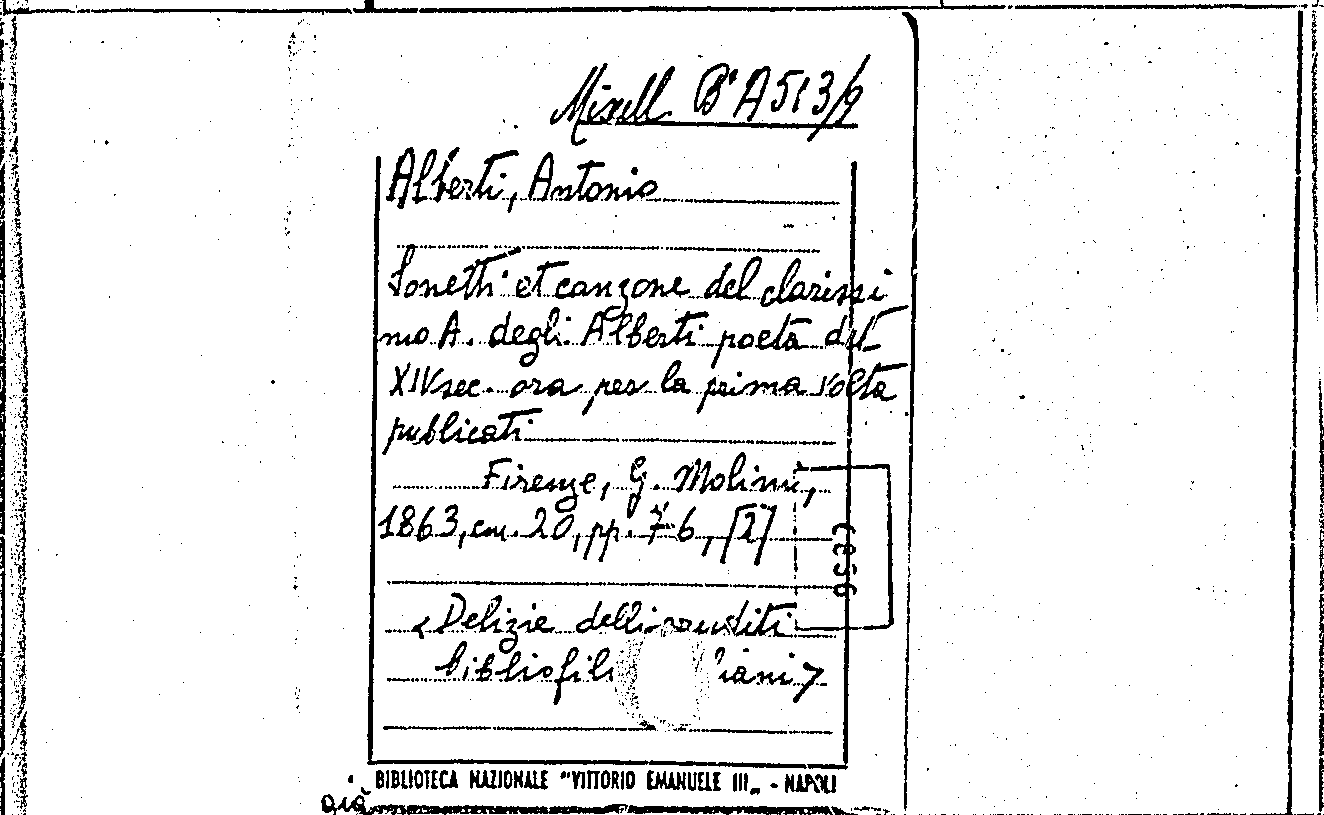 Miscell. Bª A 513/9
Alberti, Antonio
Sonetti et canzone del clarissi
mo A. degli Alberti poeta del
XIV sec. ora per la prima volta
publicati
Firenze, G. Molini,
1863, cm. 20, pp. 76, [2]
9533
<Delizie delli eruditi
bibliofili liani>
BIBLIOTECA NAZIONALE "VITTORIO EMANUELE III„ - NAPOLI
già